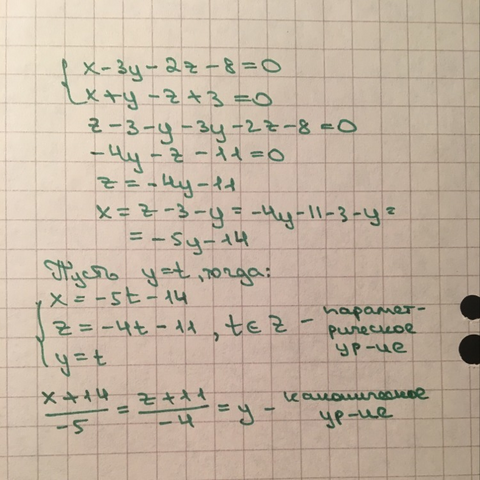 { x - 3y - 2z - 8 = 0
x + y - z + 3 = 0
z - 3 - y - 3y - 2z - 8 = 0
-4y - z - 11 = 0
z = -4y - 11
x = z - 3 - y = -4y - 11 - 3 - y =
= -5y - 14
Пусть y = t, тогда:
{ x = -5t - 14
z = -4t - 11 , t ∈ Z - парамет-
рическое
ур-ие
y = t
x + 14 / -5 = z + 11 / -4 = y - каноническое
ур-ие